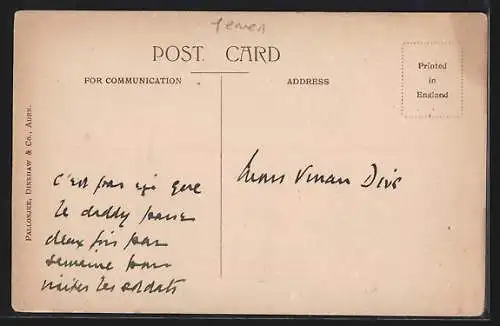 Yemen
POST CARD
FOR COMMUNICATION
ADDRESS
Printed
in
England
PALLONJEE, DINSHAW & CO., ADEN.
c'est par ici que
le daddy passe
deux fois par
semaine pour
visiter les soldats